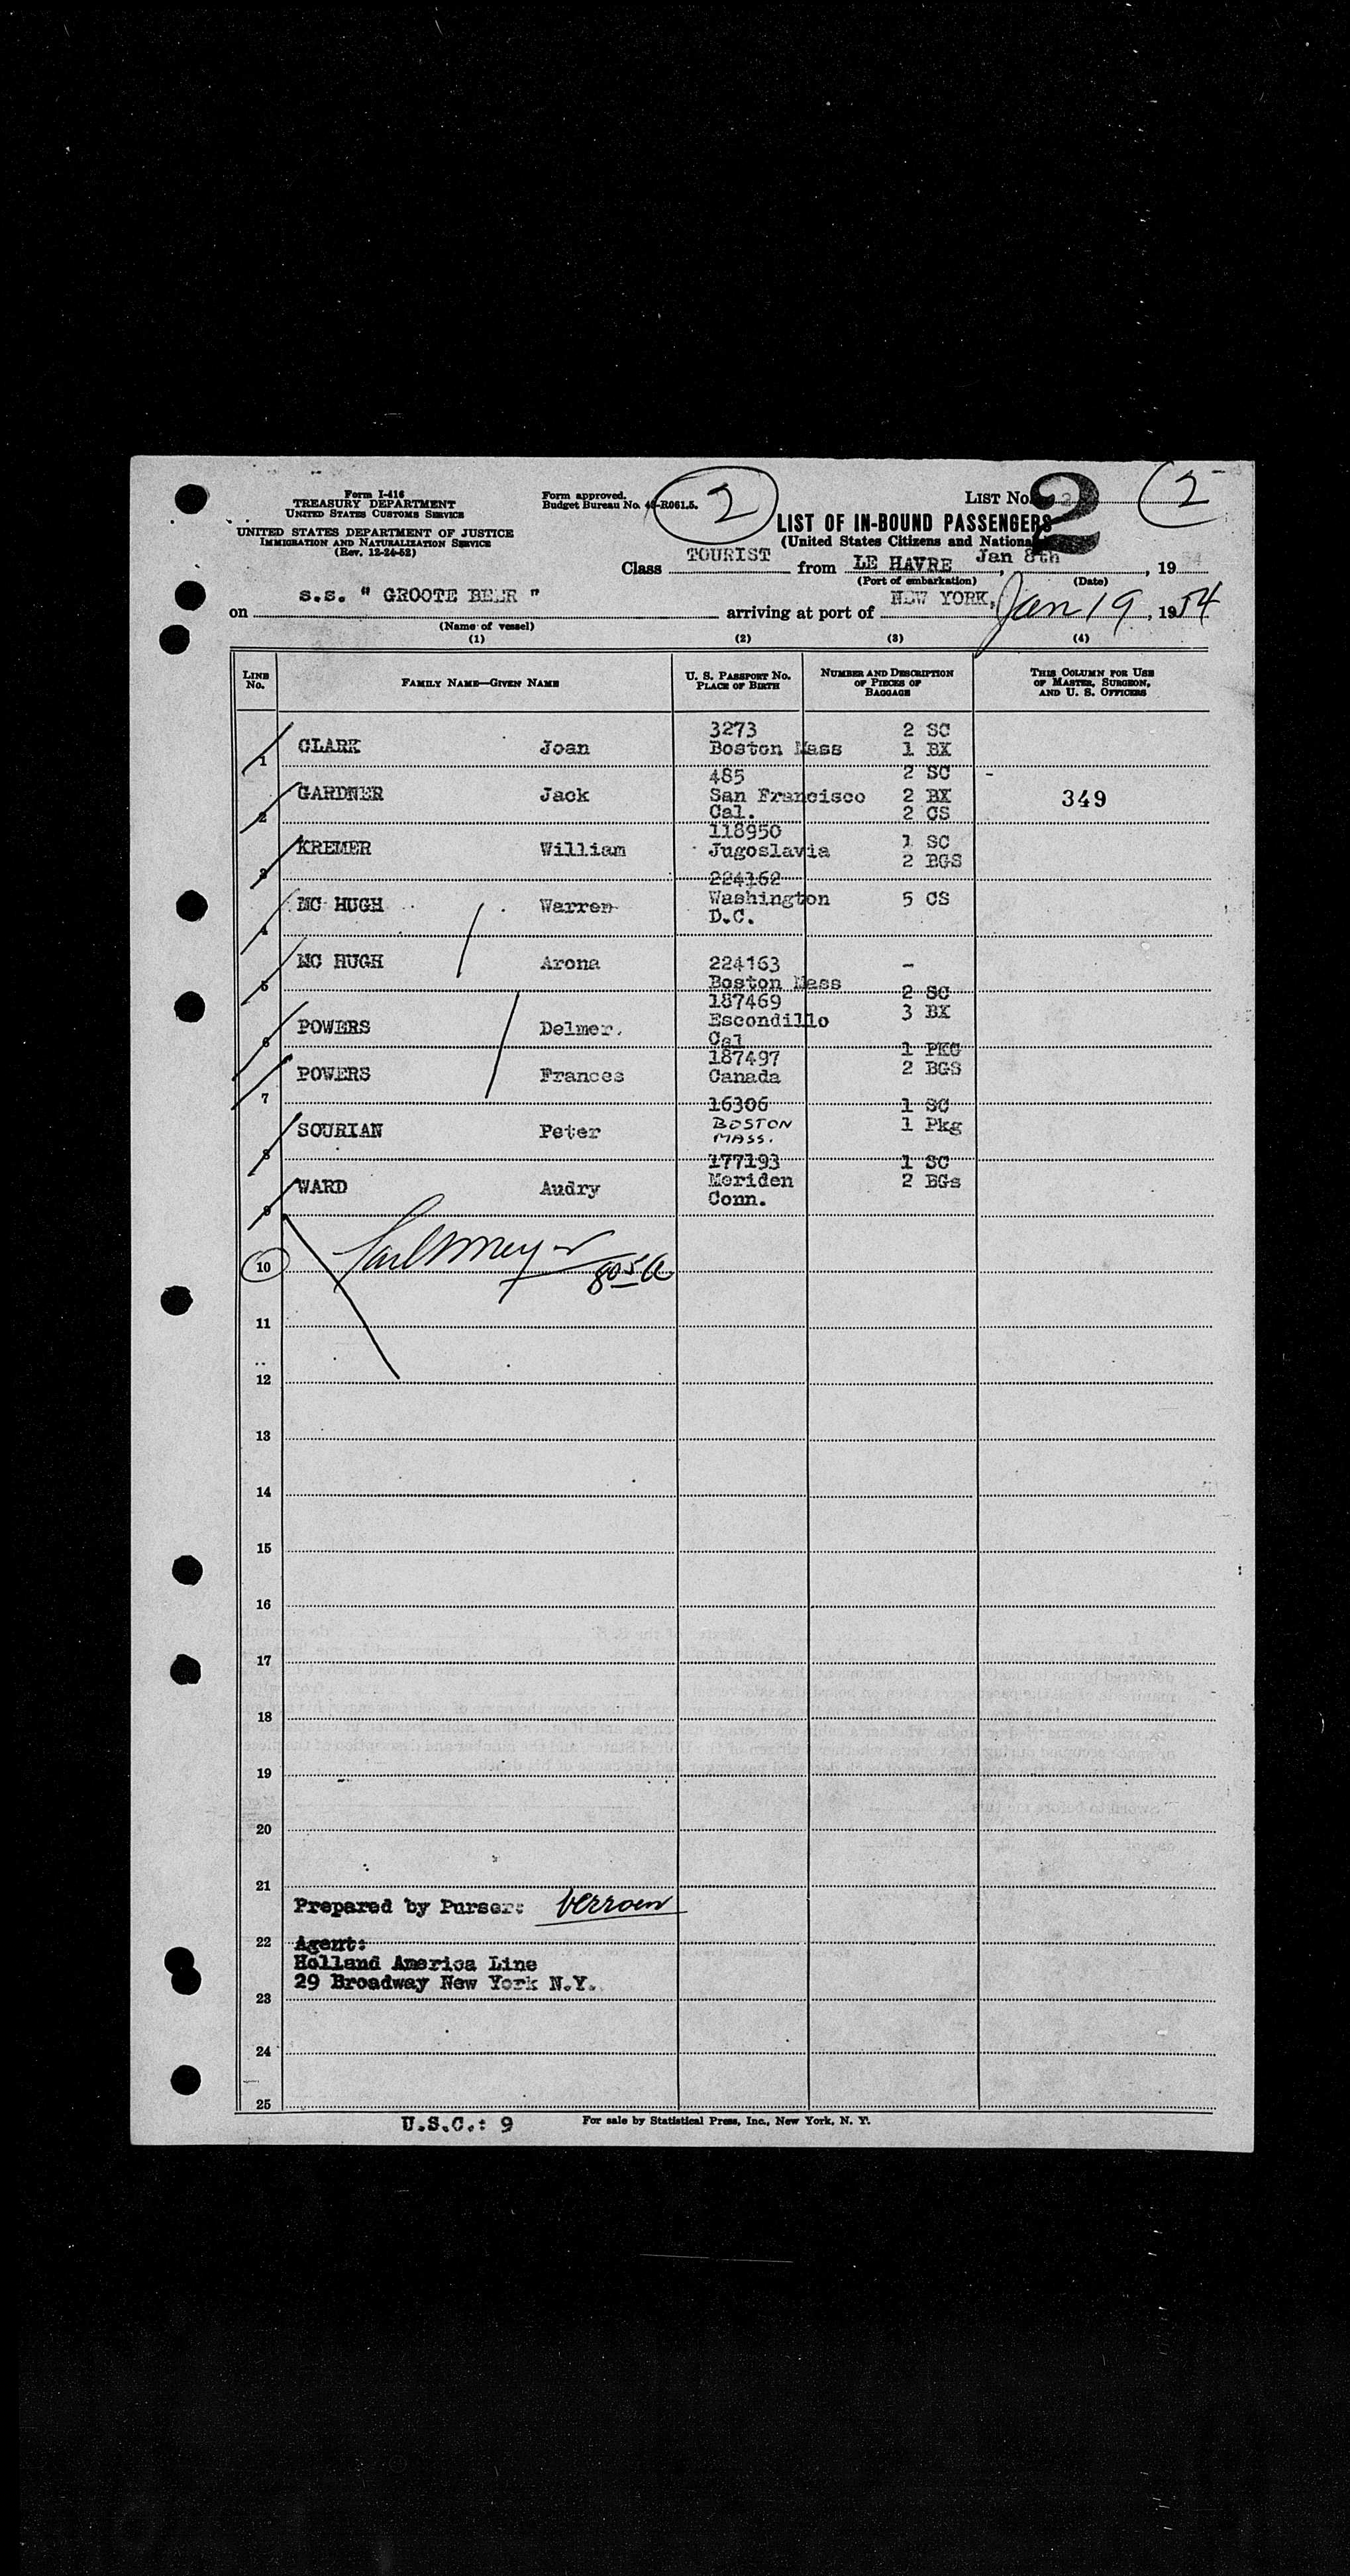 Form I-416
TREASURY DEPARTMENT
UNITED STATES CUSTOMS SERVICE
UNITED STATES DEPARTMENT OF JUSTICE
IMMIGRATION AND NATURALIZATION SERVICE
(Rev. 12-24-52)
Form approved.
Budget Bureau No. 43-R061.5.
2
LIST No. 2
2
LIST OF IN-BOUND PASSENGERS
(United States Citizens and Nationals)
Class TOURIST from LE HAVRE, Jan 8th, 1954
(Port of embarkation) (Date)
on s.s. " GROOTE BEER " arriving at port of NEW YORK, Jan 19, 1954
(Name of vessel)
(1) (2) (3) (4)
LINE No. FAMILY NAME—GIVEN NAME U. S. PASSPORT NO. PLACE OF BIRTH NUMBER AND DESCRIPTION OF PIECES OF BAGGAGE THIS COLUMN FOR USE OF MASTER, SURGEON, AND U. S. OFFICERS
3273 2 SC
1 CLARK Joan Boston Mass 1 BX
485 2 SC -
2 GARDNER Jack San Francisco 2 BX 349
Cal. 2 CS
118950 1 SC
3 KREMER William Jugoslavia 2 BGS
224162
4 MC HUGH Warren Washington 5 CS
D.C.
5 MC HUGH Arona 224163 -
Boston Mass
187469 2 SC
6 POWERS Delmer. Escondillo 3 BX
Cal
187497 1 PKG
7 POWERS Frances Canada 2 BGS
16306 1 SC
8 SOURIAN Peter BOSTON 1 Pkg
MASS.
177193 1 SC
9 WARD Audry Meriden 2 BGs
Conn.
10
11
12
13
14
15
16
17
18
19
20
21
Prepared by Purser: Verroen
22 Agent:
Holland America Line
29 Broadway New York N.Y.
23
24
25
U.S.C.: 9 For sale by Statistical Press, Inc., New York, N. Y.